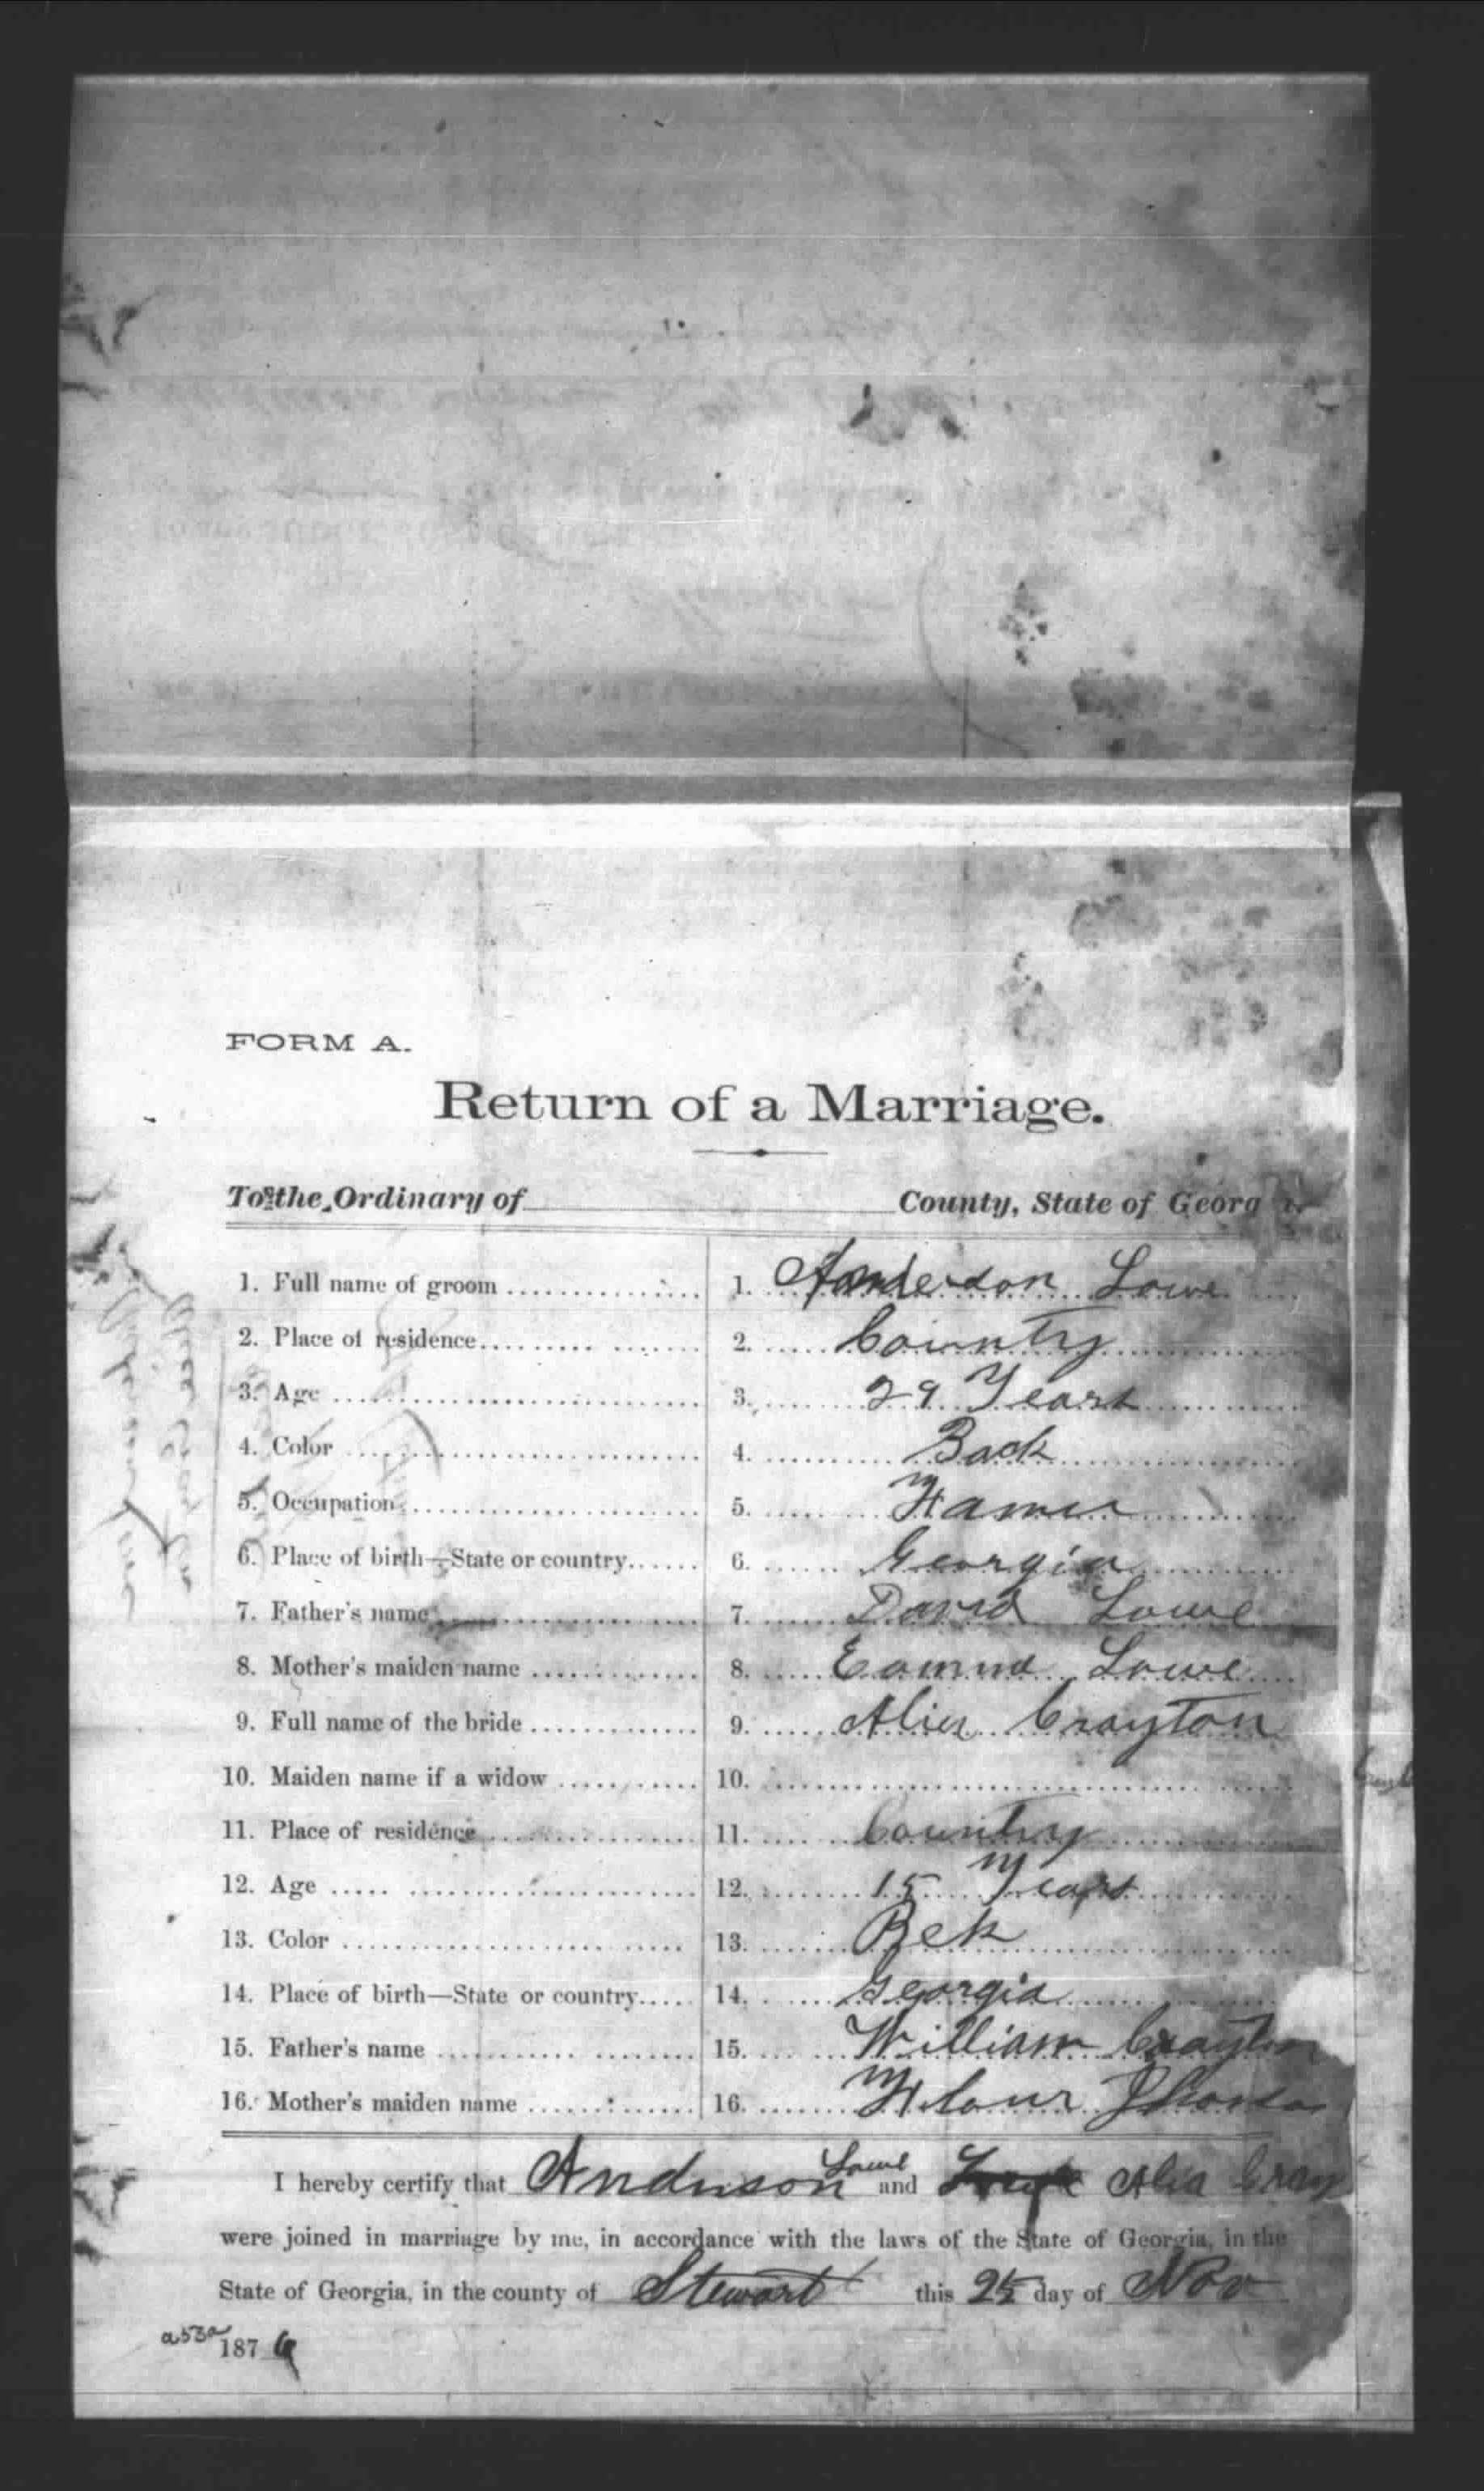 FORM A.
Return of a Marriage.
To the Ordinary of County, State of Georg
1. Full name of groom 1. Anderson Lowe
2. Place of residence 2. Country
3. Age 3. 29 Years
4. Color 4. Back
5. Occupation 5. Famer
6. Place of birth—State or country 6. Georgia
7. Father's name 7. David Lowe
8. Mother's maiden name 8. Lowe
9. Full name of the bride 9. Crayton
10. Maiden name if a widow 10.
11. Place of residence 11. Country
12. Age 12. 15 Years
13. Color 13. Bek
14. Place of birth—State or country 14. Georgia
15. Father's name 15. William Crayton
16. Mother's maiden name 16.
Lowe
I hereby certify that Anderson and Alia Cray
were joined in marriage by me, in accordance with the laws of the State of Georgia, in the
State of Georgia, in the county of Stewart this 25 day of Nov
a53a
187 6